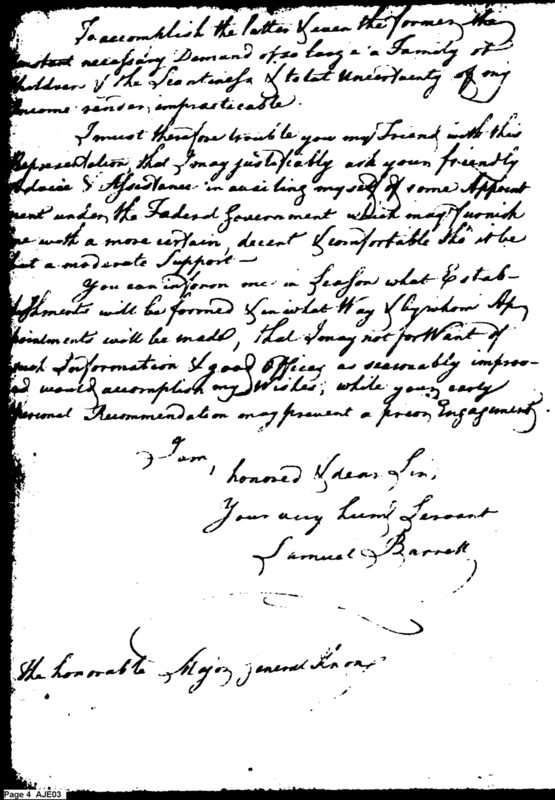 To accomplish the latter & even the former, the
constant necessary Demand of so large a Family of
Children & the Scantiness & total Uncertainty of my
Income render, impracticable.
I must therefore trouble you my Friend with this
Representation, that I may justifiably ask your friendly
Advice & Assistance in availing myself of some Appoint
ment under the Faderal Government which may furnish
me with a more certain, decent & comfortable tho' it be
but a moderate Support —
You can inform me in Season what Estab-
lishments will be formed & in what Way & by whom Ap
pointments will be made, that I may not for Want of
such Information & good Offices as seasonably improv-
ed would accomplish my Wishes; while your early
personal Recommendation may prevent a prior Engagement.
I am,
honored & dear Sir,
Your very huml Servant
Samuel Barrett
The honorable Major general Knox
Page 4 AJE03